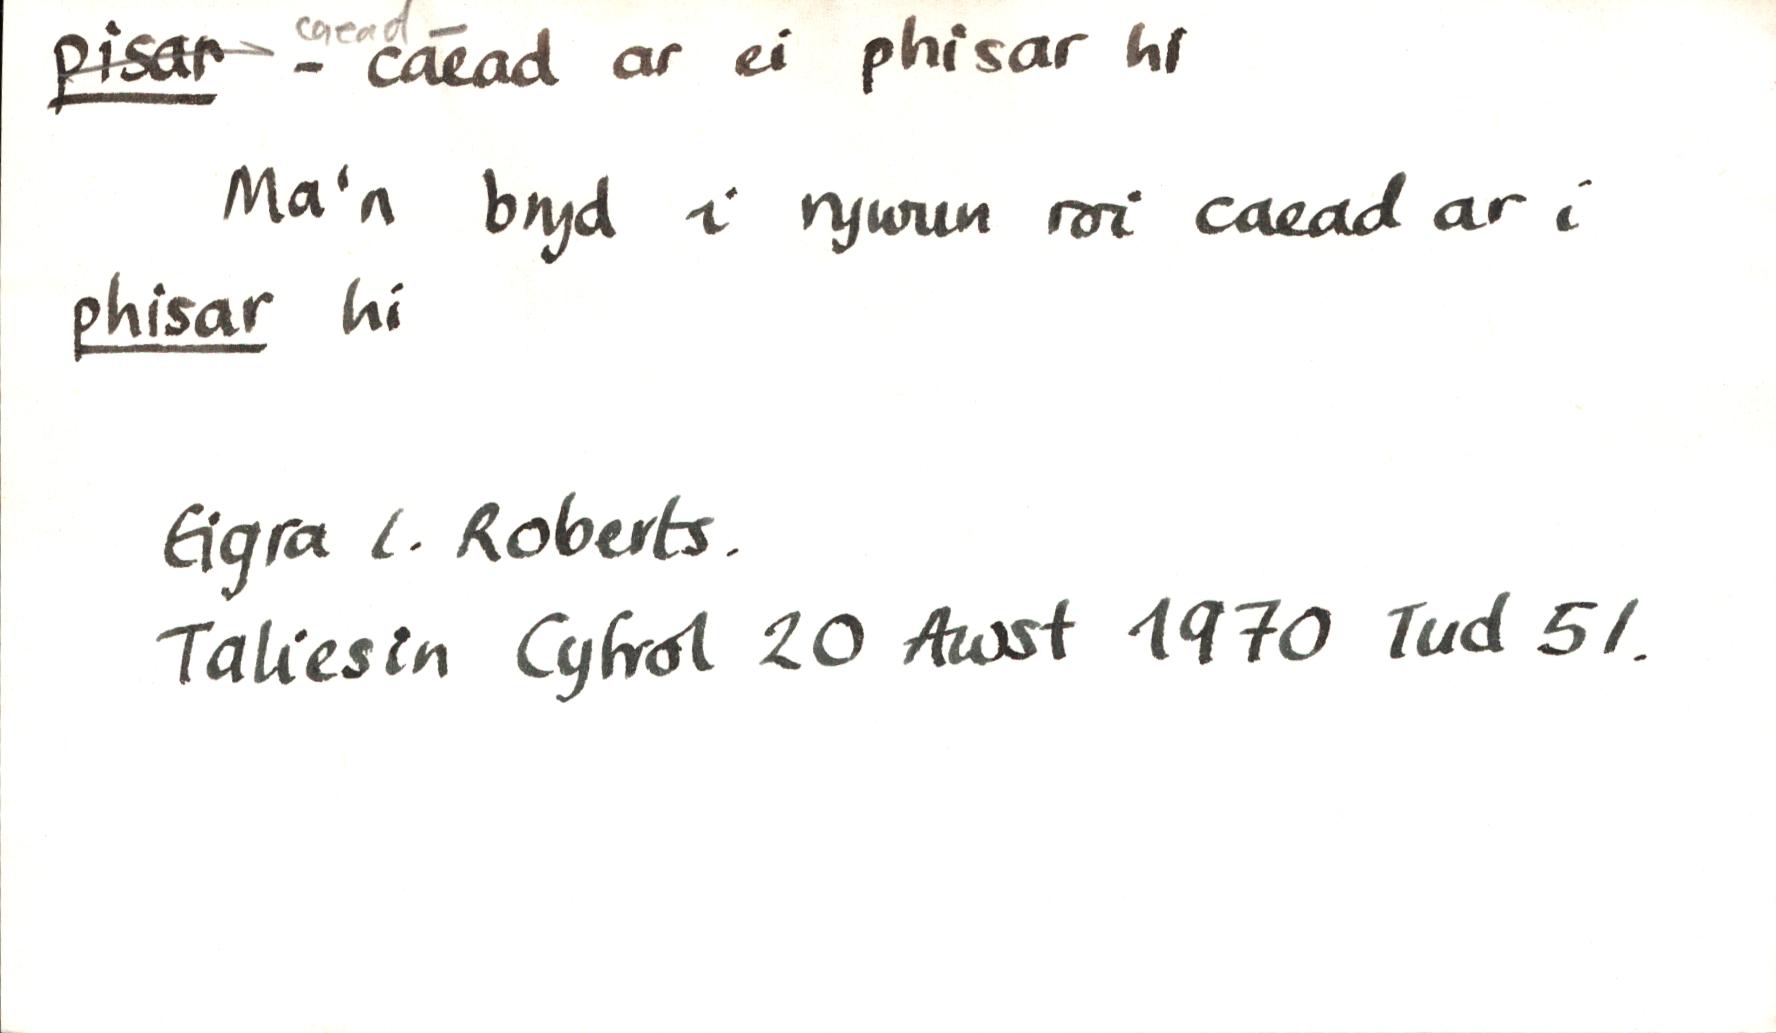 pisar - caead caead ar ei phisar hi
Ma'n bryd i rywun roi caead ar i
phisar hi
Eigra L. Roberts.
Taliesin Cyfrol 20 Awst 1970 Tud 51.